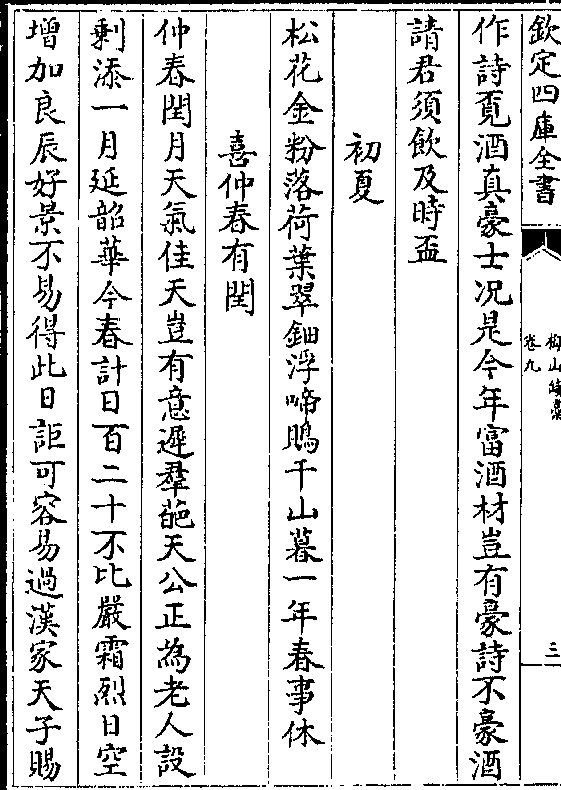 欽定四庫全書
梅山續藁
卷九
三
作詩覔酒真豪士况是今年富酒材豈有豪詩不豪酒
請君須飲及時盃
初夏
松花金粉落荷葉翠鈿浮啼鴂千山暮一年春事休
喜仲春有閏
仲春閏月天氣佳天豈有意遲羣葩天公正為老人設
剩添一月延韶華今春計日百二十不比嚴霜烈日空
增加良辰好景不易得此日詎可容易過漢家天子賜